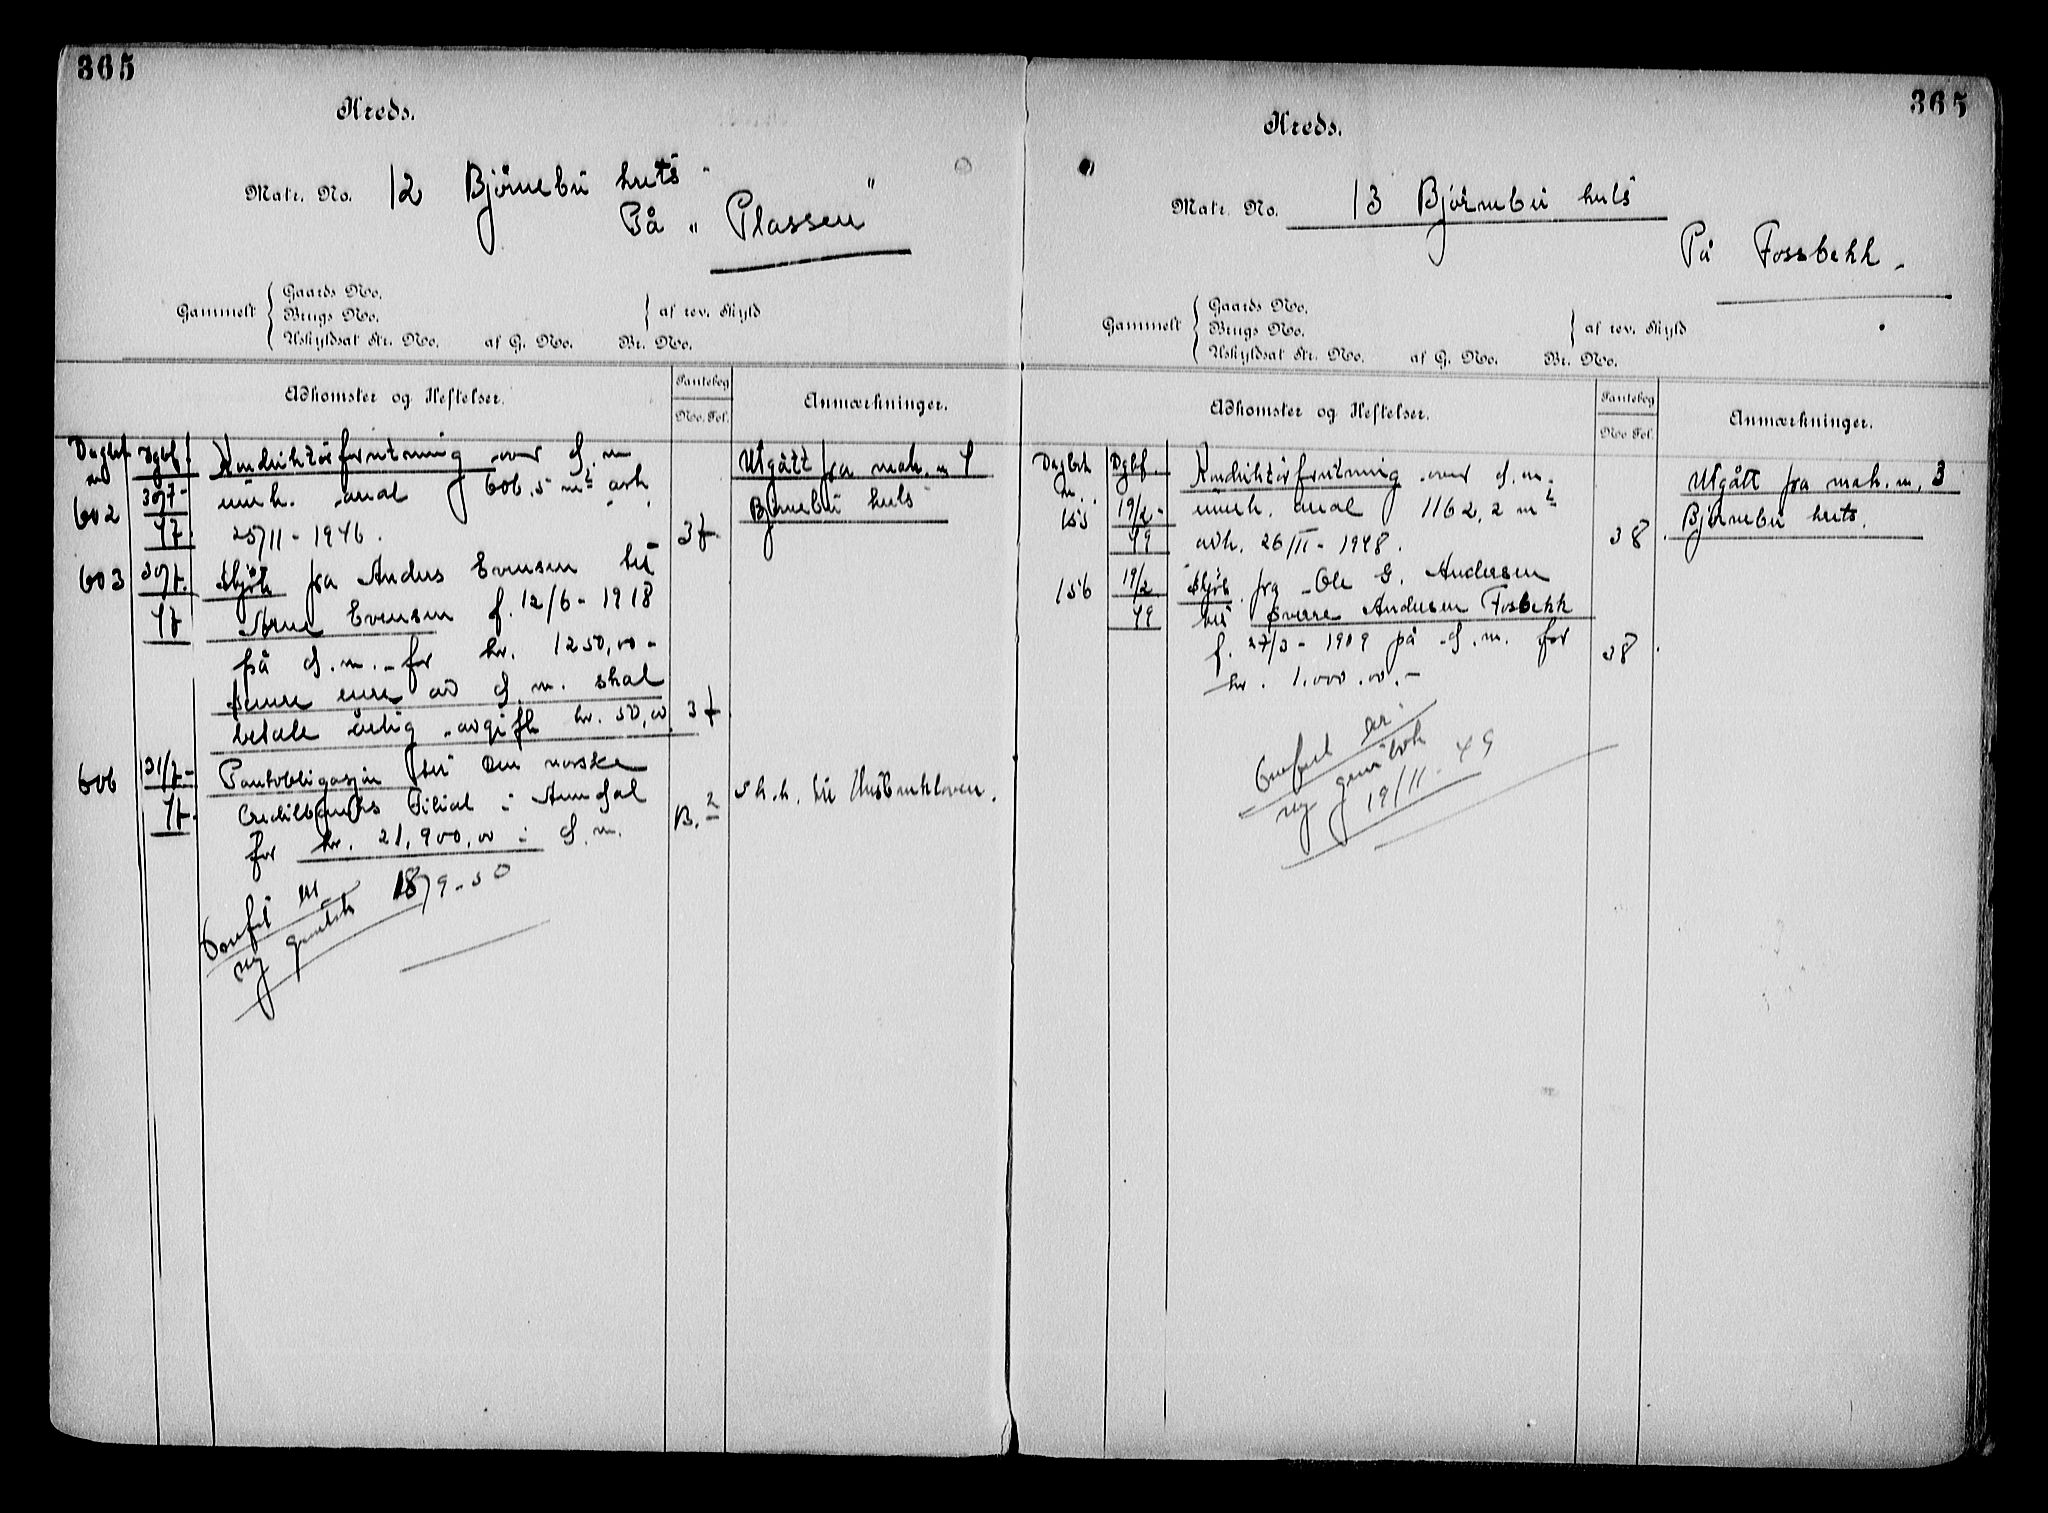 365
Kreds.
Matr. No. 12 Bjørnebu kvts
På „ Plassen "
Gammelt
Gaards No.
Brugs No.
Uskyldsat Str. No. af G. No. Br. No.
af rev. Skyld
Adkomster og Heftelser.
Pantebog
No. Fol.
Anmærkninger.
Dagbok nr
Dgbf.
602
30/7-47.
Konduktørforretning over d. m
areal 606.5 m²
25/11-1946.
37
Utgått fra matr. nr 4
Bjørnebu kvts
603
30/7. 47
Skjøte fra Anders Evensen til
Arne Evensen f. 12/6-1918
på d. m. for kr. 1250,00-
av d. m. skal
betale årlig avgift kr. 50,00
37
606
31/7-47.
Pantobligasjon til Den norske
Creditbanks Filial i Arendal
for kr. 21,900,00 i d. m.
B. 2
til Husbankloven.
Overført til
ny grunnbok 18/9-50
365
Kreds.
Matr. No. 13 Bjørnebu kvts
På Fossbekk
Gammelt
Gaards No.
Brugs No.
Uskyldsat Str. No. af G. No. Br. No.
af rev. Skyld
Adkomster og Heftelser.
Pantebog
No. Fol.
Anmærkninger.
Dagbok nr.
Dgbf.
155
19/2-49
Konduktørforretning over d. m.
areal 1162,2 m²
avh. 26/II-1948.
38
Utgått fra matr. nr. 3
Bjørnebu kvts.
156
19/2 49
Skjøte fra Ole G. Andersen
til Sverre Andersen Fosbekk
f. 27/3-1909 på d. m. for
kr. 1.000.00.-
38
Overført til
ny grunnbok
19/11-49